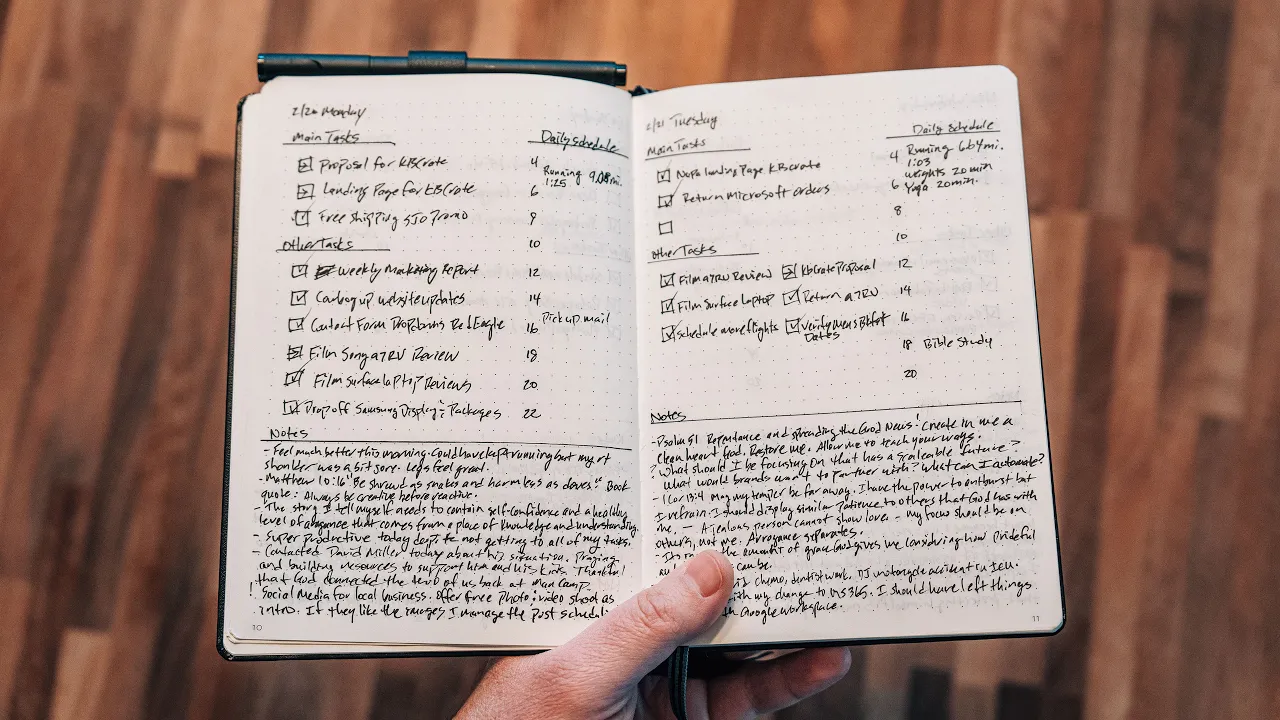 2/20 Monday
Main Tasks
Proposal for KBCrate
Landing Page for KBCrate
Free Shipping Promo
Other Tasks
Weekly Marketing Report
website updates
Contact Form Dropdowns Red Eagle
Film Sony a7RV Review
Film Surface laptop Reviews
Drop off Samsung Display & Packages
Daily Schedule
4
Running 9.08 mi.
1:25
6
8
10
12
14
Pick up mail
16
18
20
22
Notes
- Feel much better this morning. Could have kept running but my rt
shoulder was a bit sore. Legs feel great.
- Matthew 10:16 "Be shrewd as snakes and harmless as doves" Book
quote: Always be creative before reactive.
- The story I tell myself needs to contain self-confidence and a healthy
level of arrogance that comes from a place of knowledge and understanding.
- Super productive today despite not getting to all of my tasks.
- Contacted David Miller today about his situation. Praying
and building resources to support him and his kids. Thankful
that God connected the two of us back at Man Camp.
! Social Media for local business. Offer free photo & video shoot as
intro. If they like the images I manage the post
10
2/21 Tuesday
Main Tasks
landing Page KBCrate
Return Microsoft orders
Other Tasks
Film a7RV Review KBCrate Proposal
Film Surface laptop Return a7RV
Schedule more flights Verify Mens Bkfst
Dates
Daily Schedule
4 Running 6.64 mi.
1:03
weights 20 min
6 Yoga 20 min.
8
10
12
14
16
18 Bible Study
20
Notes
- Psalm 51 Repentance and spreading the Good News! Create in me a
clean heart God. Restore me. Allow me to teach your ways.
? What should I be focusing on that has a scaleable future?
What would brands want to partner with? What can I automate?
- 1 Cor 13:4 May my temper be far away. I have the power to outburst but
I refrain. I should display similar patience to others that God has with
me. — A jealous person cannot show love - my focus should be on
others, not me. Arrogance separates.
the amount of grace God gives me considering how prideful
can be.
chemo, dentist work, motorcycle accident in
with my change to MS365. I should have left things
Google workspace.
11